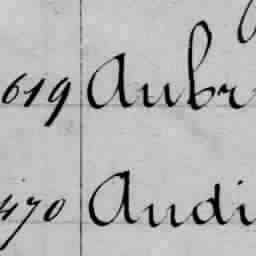 619 Aubr
470 Audi